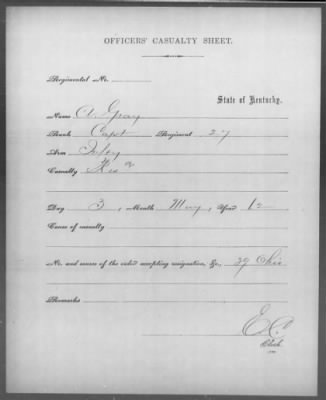 OFFICERS' CASUALTY SHEET.
Regimental No.
State of Kentucky.
Name A. Gray
Rank Capt Regiment 27
Arm Infty
Casualty Res d
Day 3, Month May, Year 62
Cause of casualty
No. and source of the order accepting resignation, &c., 29 Ohio
Remarks
E.C.
Clerk.